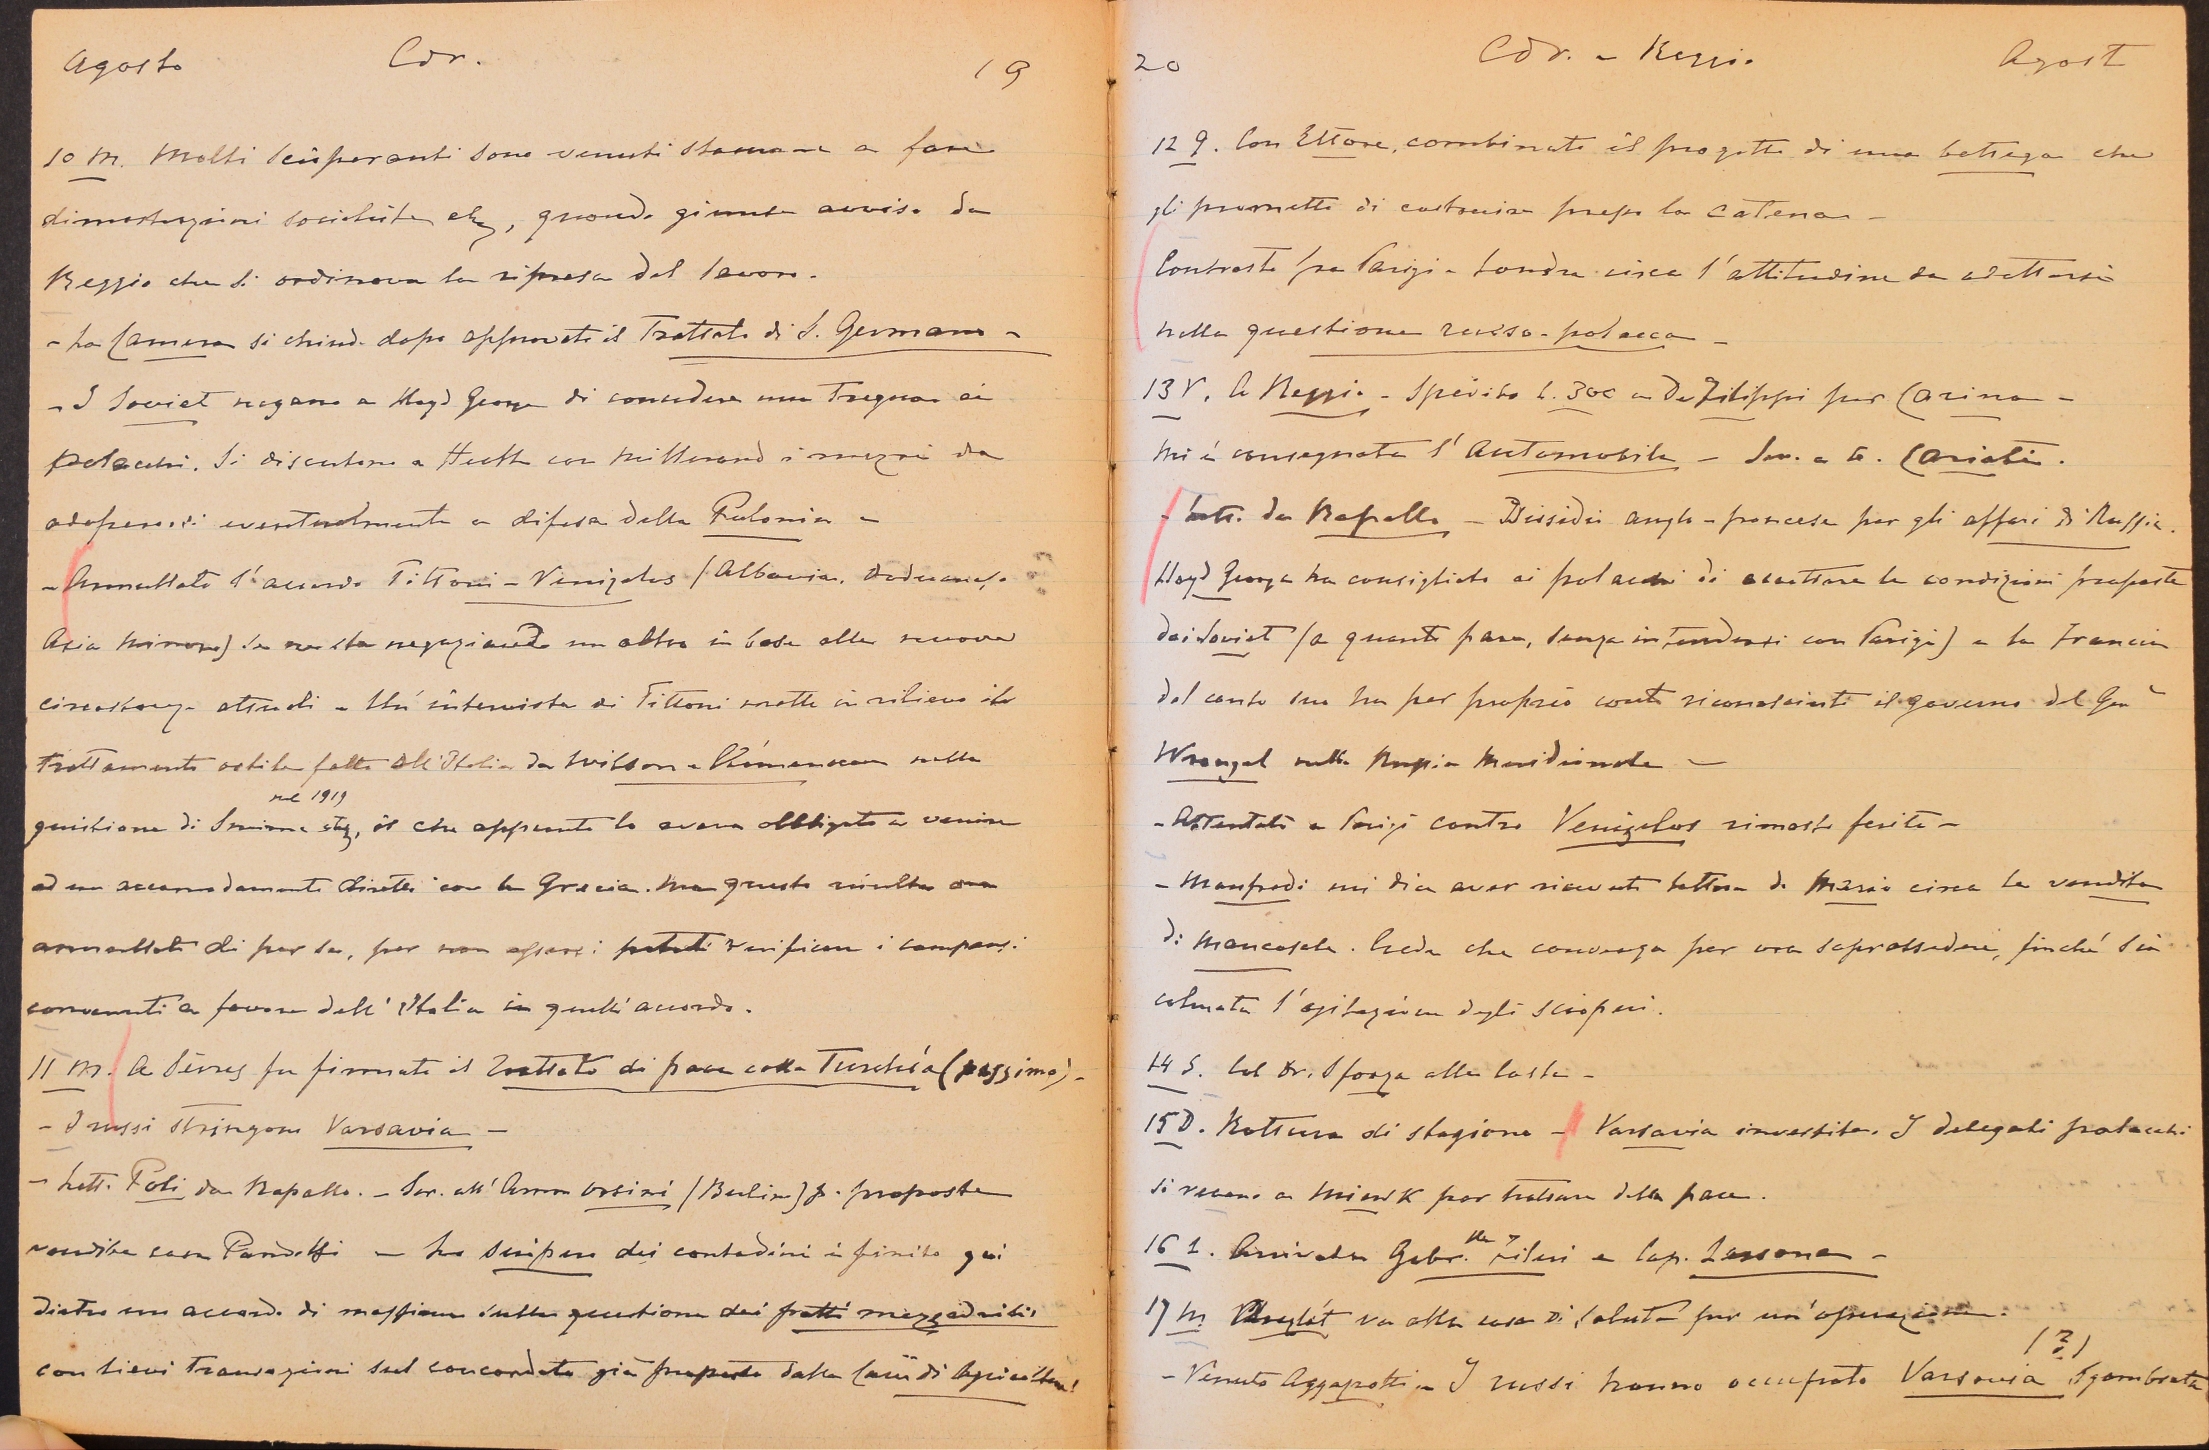 Agosto Cor. 19
10 M. Molti scioperanti sono venuti stamane a fare
dimostrazioni socialiste etc, quando giunse avviso da
Reggio che si ordinava la ripresa del lavoro.
- La Camera si chiude dopo approvato il Trattato di S. Germano -
- I Soviet negano a Lloyd George di concedere una Tregua ai
polacchi. Si discutono a Heeth con Millerand i mezzi da
adoperarsi eventualmente a difesa della Polonia -
- Annullato l'accordo Tittoni - Venizelos (Albania, Dodecaneso
Asia Minore) Se ne sta negoziando un altro in base alle nuove
circostanze attuali - Un'intervista di Tittoni mette in rilievo il
trattamento ostile fatto all'Italia da Wilson e Clémenceau nella
nel 1919
quistione di Smirne etc, il che appunto lo aveva obbligato a venire
ad un accomodamento diretto con la Grecia. Ma questo risulta ora
annullato di per se, per non essersi potuti verificare i compensi
convenuti a favore dell'Italia in quell'accordo.
11 M. A Sèvres fu firmato il Trattato di pace colla Turchia (pessimo) -
- I russi stringono Varsavia -
- Lett. Poli da Rapallo. - Scr. all' Amm Orsini (Berlino) p. proposta
vendita casa - Lo sciopero dei contadini è finito qui
dietro un accordo di massima sulla questione dei patti mezzadrili
con lievi transazioni sul concordato già proposto dalla Cam di Agricoltura!
20 Cor. - Reggio Agost
12 G. Con Ettore, combinato il progetto di una bottega che
gli prometto di costruire presso la Catena -
Contrasto fra Parigi e Londra circa l'attitudine da adottarsi
nella questione russo-polacca -
13 V. A Reggio - Spedito L. 300 a De Filippi per Carina -
Mi è consegnata l'Automobile - Scr. a Cariati.
- Lett. da Rapallo - Dissidio anglo-francese per gli affari di Russia.
Lloyd George ha consigliato ai polacchi di accettare le condizioni proposte
dai Soviet (a quanto pare, senza intendersi con Parigi) e la Francia
dal canto suo ha per proprio conto riconosciuto il governo del Gen
Wrangel nella Russia Meridionale -
- Attentato a Parigi contro Venizelos rimasto ferito -
- Manfredi mi dice aver ricevuto lettera di Mario circa la vendita
di Mancasale. Crede che convenga per ora soprassedere, finché sia
calmata l'agitazione degli scioperi.
14 S. Col Dr. Sforza alle Coste -
15 D. Rottura di stagione - Varsavia investita. I delegati polacchi
si recano a Minsk per trattare della pace.
16 L. Arrivata Gabr. e Cap. Lessona -
17 M. va alla casa di salute per un'operazione.
(?)
- Venuto Aggazzotti - I russi hanno occupato Varsavia Sgombrata